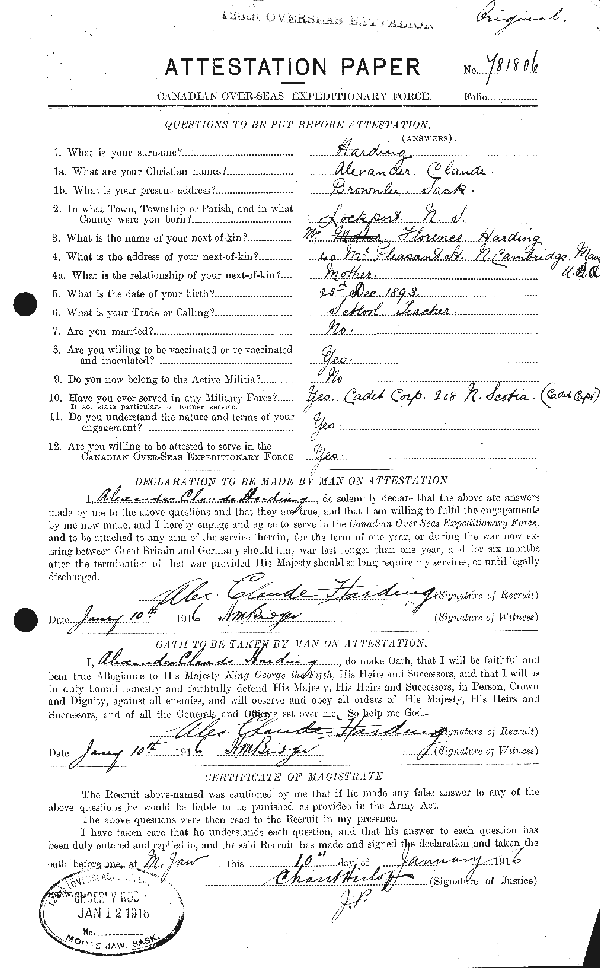 Original.
ATTESTATION PAPER
No. 781806
CANADIAN OVER-SEAS EXPEDITIONARY FORCE.
Folio
QUESTIONS TO BE PUT BEFORE ATTESTATION.
(ANSWERS).
1. What is your surname? Harding
1a. What are your Christian names? Alexander Claude
1b. What is your present address? Brownlee Sask.
2. In what Town, Township or Parish, and in what
Country were you born? Lockport N. S.
3. What is the name of your next-of-kin? Florence Harding
4. What is the address of your next-of-kin? 20 Mt Pleasant St. N. Cambridge. Mass
U S A
4a. What is the relationship of your next-of-kin? Mother.
5. What is the date of your birth? Dec 1893.
6. What is your Trade or Calling? School Teacher
7. Are you married? No.
8. Are you willing to be vaccinated or re-vaccinated
and inoculated? Yes.
9. Do you now belong to the Active Militia? No
10. Have you ever served in any Military Force? Yes. Cadet Corp. 218 N. Scotia. (Cadet Capt)
If so, state particulars of former service.
11. Do you understand the nature and terms of your
engagement? Yes.
12. Are you willing to be attested to serve in the
CANADIAN OVER-SEAS EXPEDITIONARY FORCE Yes.
DECLARATION TO BE MADE BY MAN ON ATTESTATION
I, Alexander Claude Harding, do solemnly declare that the above are answers
made by me to the above questions and that they are true, and that I am willing to fulfil the engagements
by me now made, and I hereby engage and agree to serve in the Canadian Over-Seas Expeditionary Force,
and to be attached to any arm of the service therein, for the term of one year, or during the war now ex-
isting between Great Britain and Germany should that war last longer than one year, and for six months
after the termination of that war provided His Majesty should so long require my services, or until legally
discharged.
Alex. Claude Harding (Signature of Recruit)
Date Jany 10th 1916 (Signature of Witness)
OATH TO BE TAKEN BY MAN ON ATTESTATION.
I, Alexander Claude Harding, do make Oath, that I will be faithful and
bear true Allegiance to His Majesty King George the Fifth, His Heirs and Successors, and that I will as
in duty bound honestly and faithfully defend His Majesty, His Heirs and Successors, in Person, Crown
and Dignity, against all enemies, and will observe and obey all orders of His Majesty, His Heirs and
Successors, and of all the Generals and Officers set over me. So help me God.
Alex Claude Harding (Signature of Recruit)
Date Jany 10th 1916 (Signature of Witness)
CERTIFICATE OF MAGISTRATE
The Recruit above-named was cautioned by me that if he made any false answer to any of the
above questions he would be liable to be punished as provided in the Army Act.
The above questions were then read to the Recruit in my presence.
I have taken care that he understands each question, and that his answer to each question has
been duly entered as replied to, and the said Recruit has made and signed the declaration and taken the
oath before me, at M. Jaw this 10th day of January 1916
(Signature of Justice)
J.P.
JAN 12 1916
No.
MOOSE JAW, SASK.